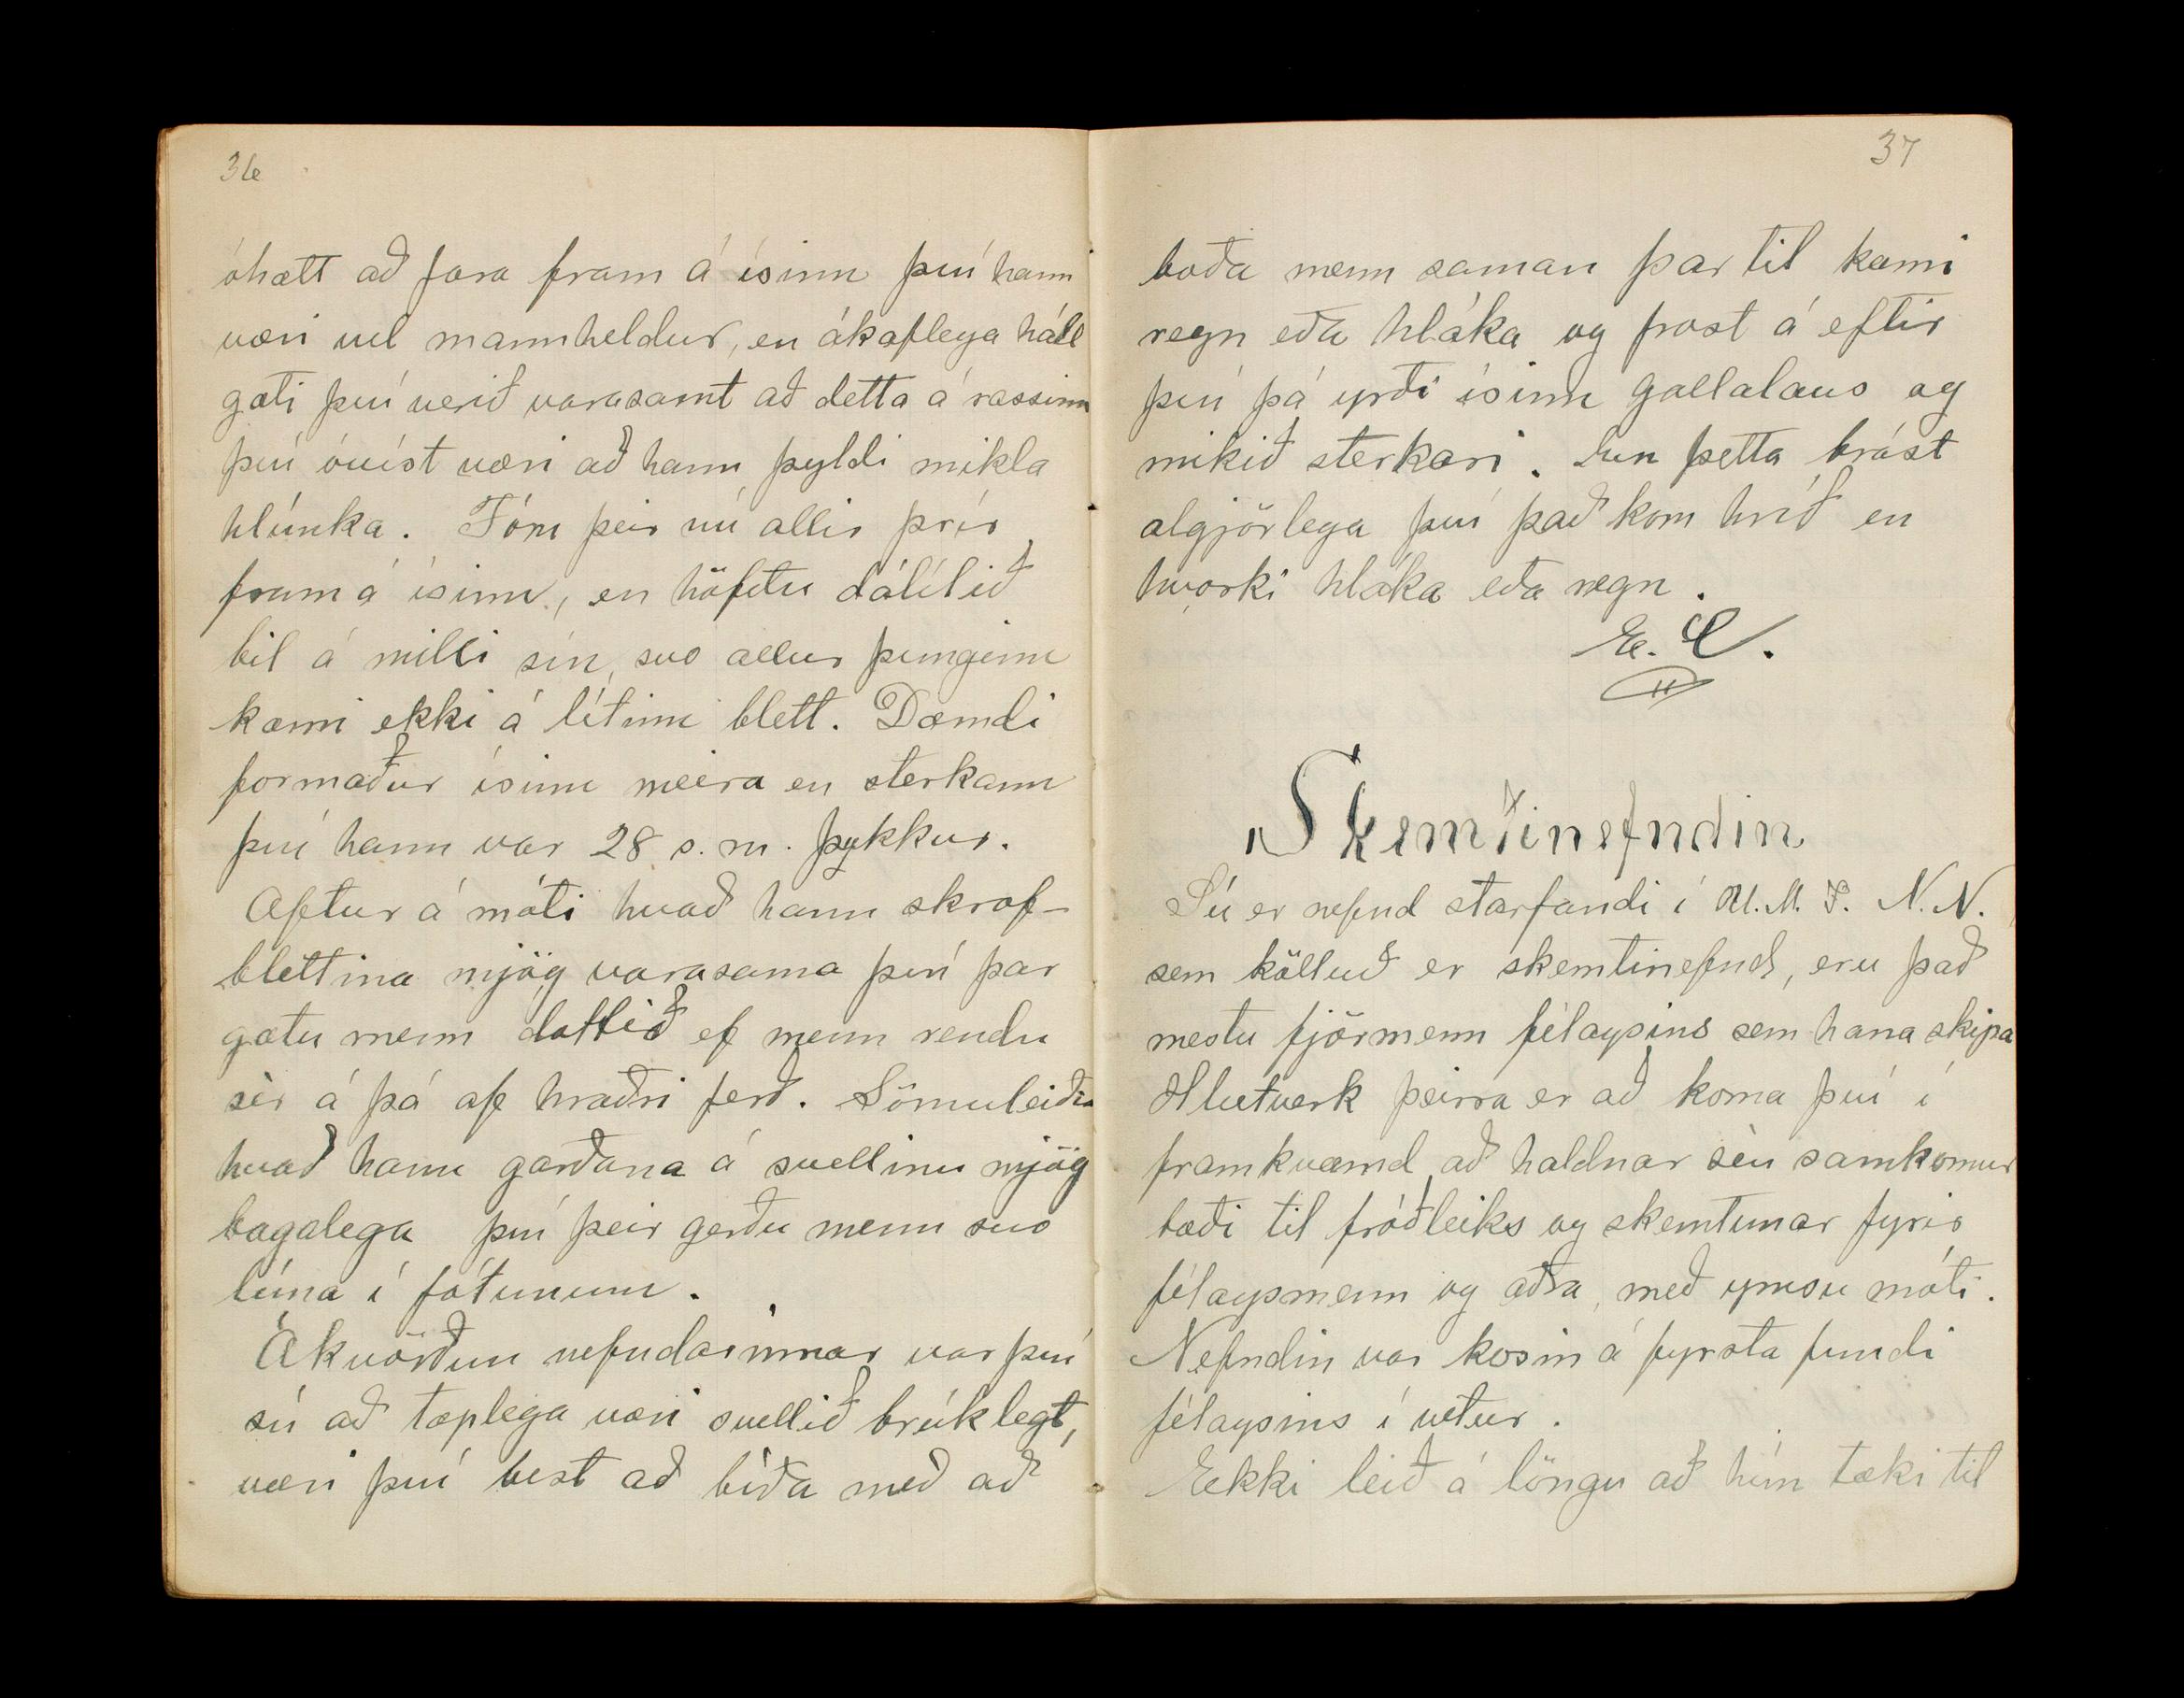 36
óhætt að fara fram á ísinn því hann
væri vel mannheldur, en ákaflega háll
gæti því verið varasamt að detta á rassinn
því óvíst væri að hann þyldi mikla
hlúnka. Fóru þeir nú allir þrír
fram á ísinn, en höfðu dálílið
bil á milli sín, svo allur þunginn
kæmi ekki á lítinn blett. Dæmdi
formaður ísinn meira en sterkann
því hann var 28 s.m. þykkur.
Aftur á móti hvað hann skrof-
blettina mjög varasama því þar
gætu menn dottið ef menn rendu
sèr á þá af hraðri ferð. Sömuleiðis
hvað hann garðana á svellinu mjög
bagalega því þeir gerðu menn svo
lúna í fótunum.
Ákvörðun nefndarinnar var því
sú að tæplega væri svellið brúklegt,
væri því best að bíða með að
37
boða menn saman þar til kæmi
regn eða hláka og frost á eftir
því þá yrði ísinn gallalaus og
mikið sterkari. En þetta brást
algjörlega því það kom hríð en
hvorki hláka eða regn.
E. E.
Skemtinefndin
Sú er nefnd starfandi í U.M.F. N.N.
sem kölluð er skemtinefnd, eru það
mestu fjörmenn félagsins sem hana skipa
Hlutverk þeirra er að koma því í
framkvæmd, að haldnar sèu samkomur
bæði til fróðleiks og skemtunar fyrir
félagsmenn og aðra, með ymsu móti.
Nefndin var kosin á fyrsta fundi
félagsins í vetur.
Ekki leið á löngu að hún tæki til